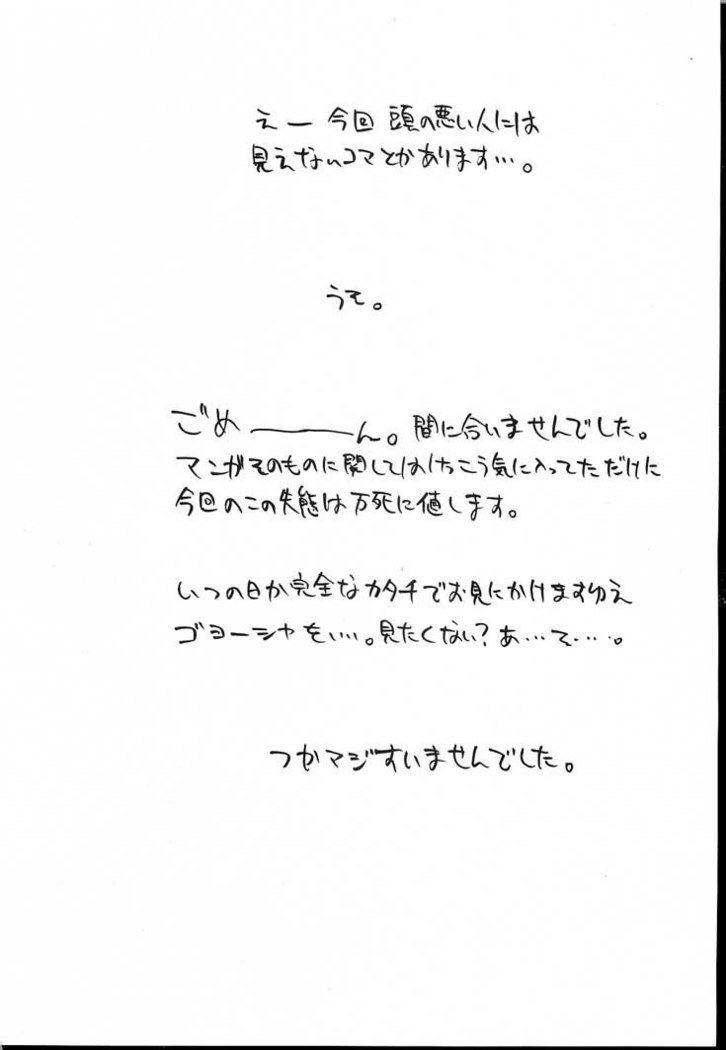 えー 今回 頭の悪い人には
見えないコマとかあります…。
うそ。
ごめ―――ん。間に合いませんでした。
マンガそのものに関してはけっこう気に入ってただけに
今回のこの失態は万死に値します。
いつの日か完全なカタチでお見にかけますゆえ
ゴヨーシャを…。見たくない?あ…そ…。
つかマジすいませんでした。